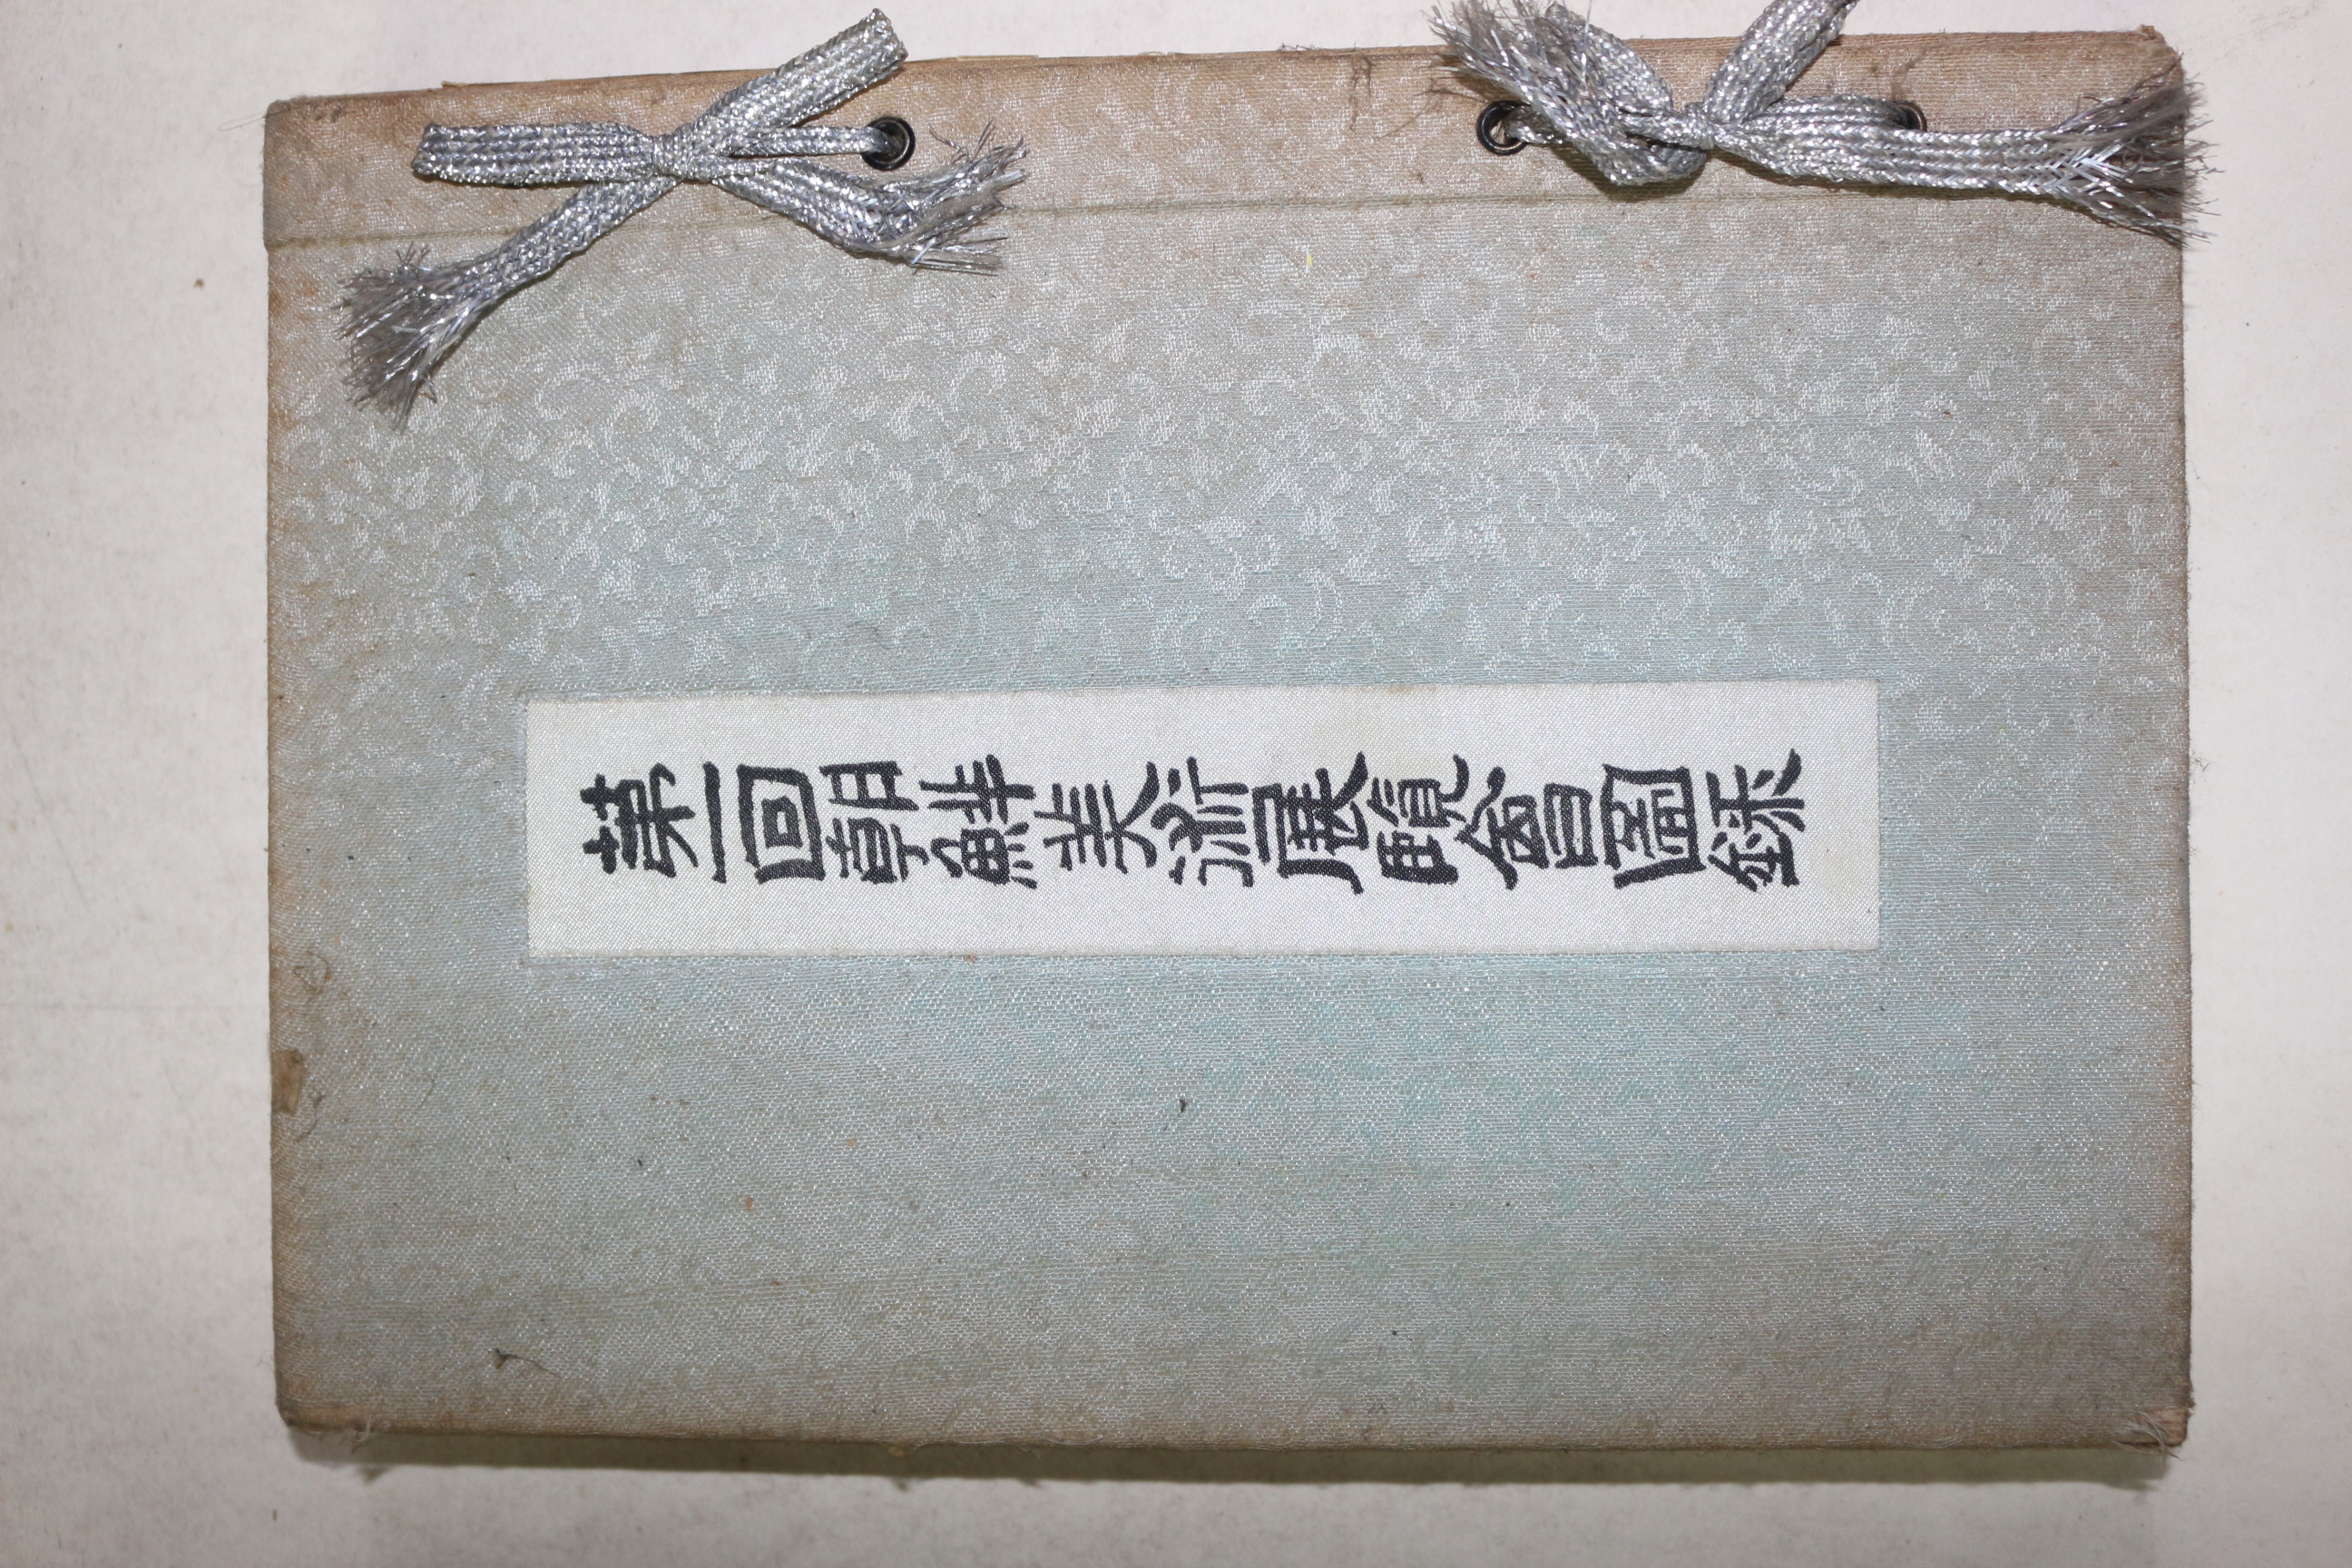 第一回朝鮮美術展覽會圖録